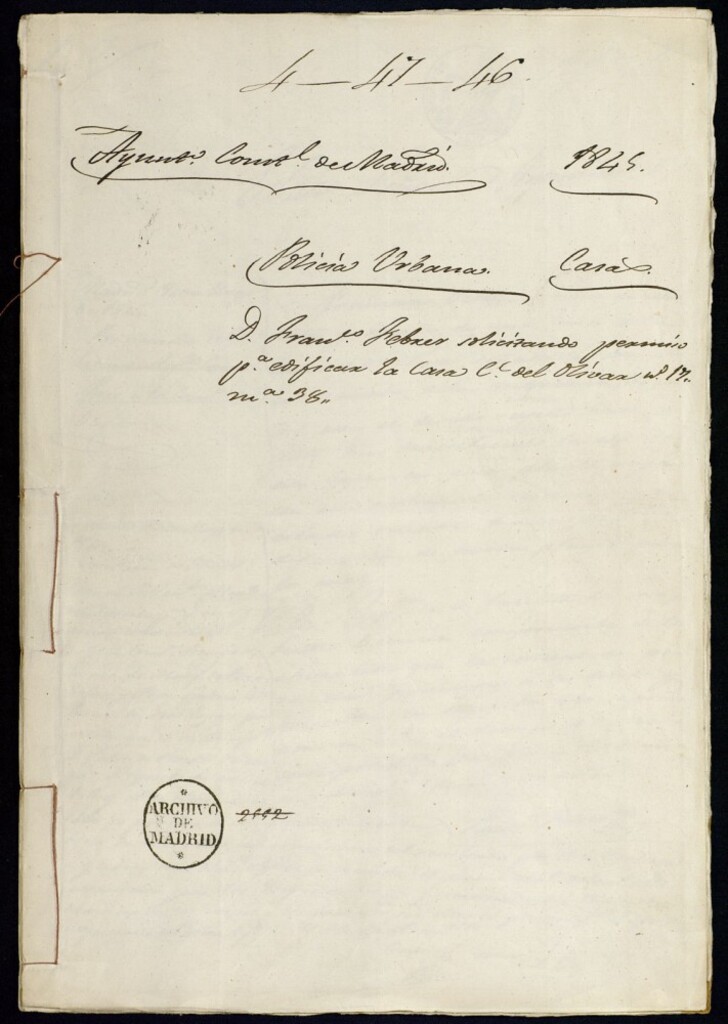 4 — 47 — 46
Ayunto. Constl. de Madrid. 1845.
Policia Urbana. Casas.
D. Franco. Febrer solicitando permiso
pa. edificar la Casa Ce. del Olivar no. 17.
ma. 38.
ARCHIVO
DE
MADRID